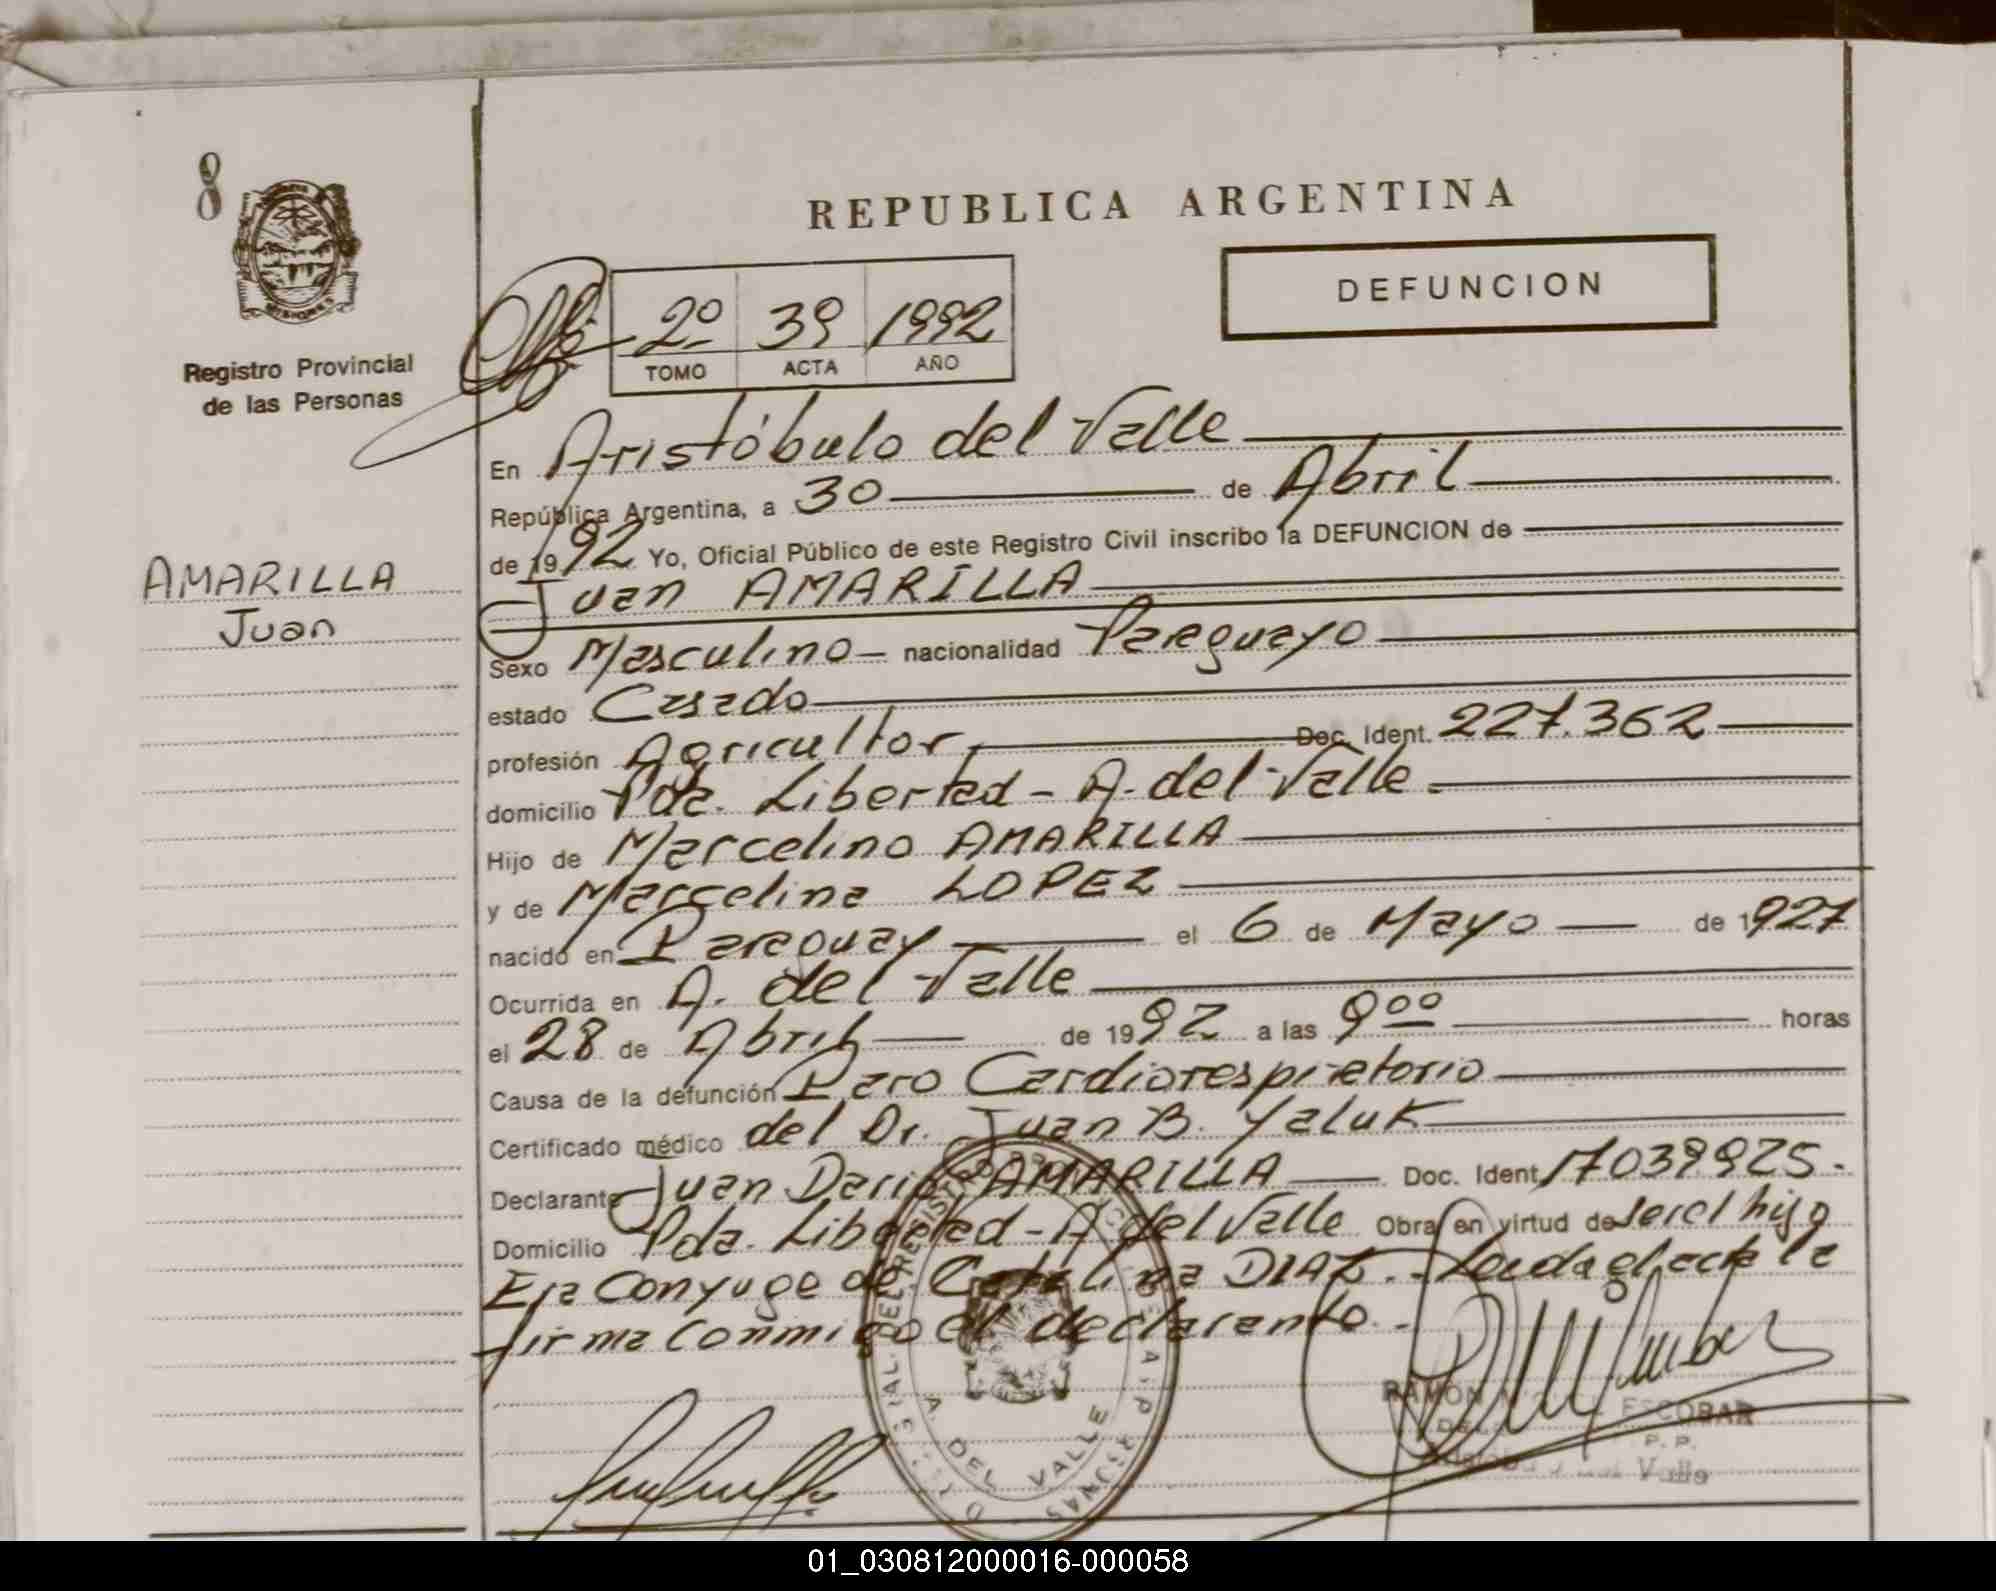 8
MISIONES
Registro Provincial
de las Personas
AMARILLA
Juan
REPUBLICA ARGENTINA
DEFUNCION
2º 39 1992
TOMO ACTA AÑO
En Aristóbulo del Valle
República Argentina, a 30 de Abril
de 1992 Yo, Oficial Público de este Registro Civil inscribo la DEFUNCION de
Juan AMARILLA
Sexo Masculino nacionalidad Paraguayo
estado Casado
profesión Agricultor, Doc. Ident. 227.362
domicilio Pda. Libertad - A. del Valle
Hijo de Marcelino AMARILLA
y de Marcelina LOPEZ
nacido en Paraguay el 6 de Mayo de 1927
Ocurrida en A. del Valle
el 28 de Abril de 1992 a las 9 00 horas
Causa de la defunción Paro Cardiorespiratorio
Certificado médico del Dr. Juan B. Yaluk
Declarante Juan Dario AMARILLA Doc. Ident. 17039925.
Domicilio Pda. Libertad - A del Valle Obra en virtud de ser el hijo
Era Conyuge de Catalina DIAZ. - Leida el acta la
firma conmigo el declarante. -
A. DEL VALLE
RAMON ESCOBAR
P. P.
Valle
01_030812000016-000058